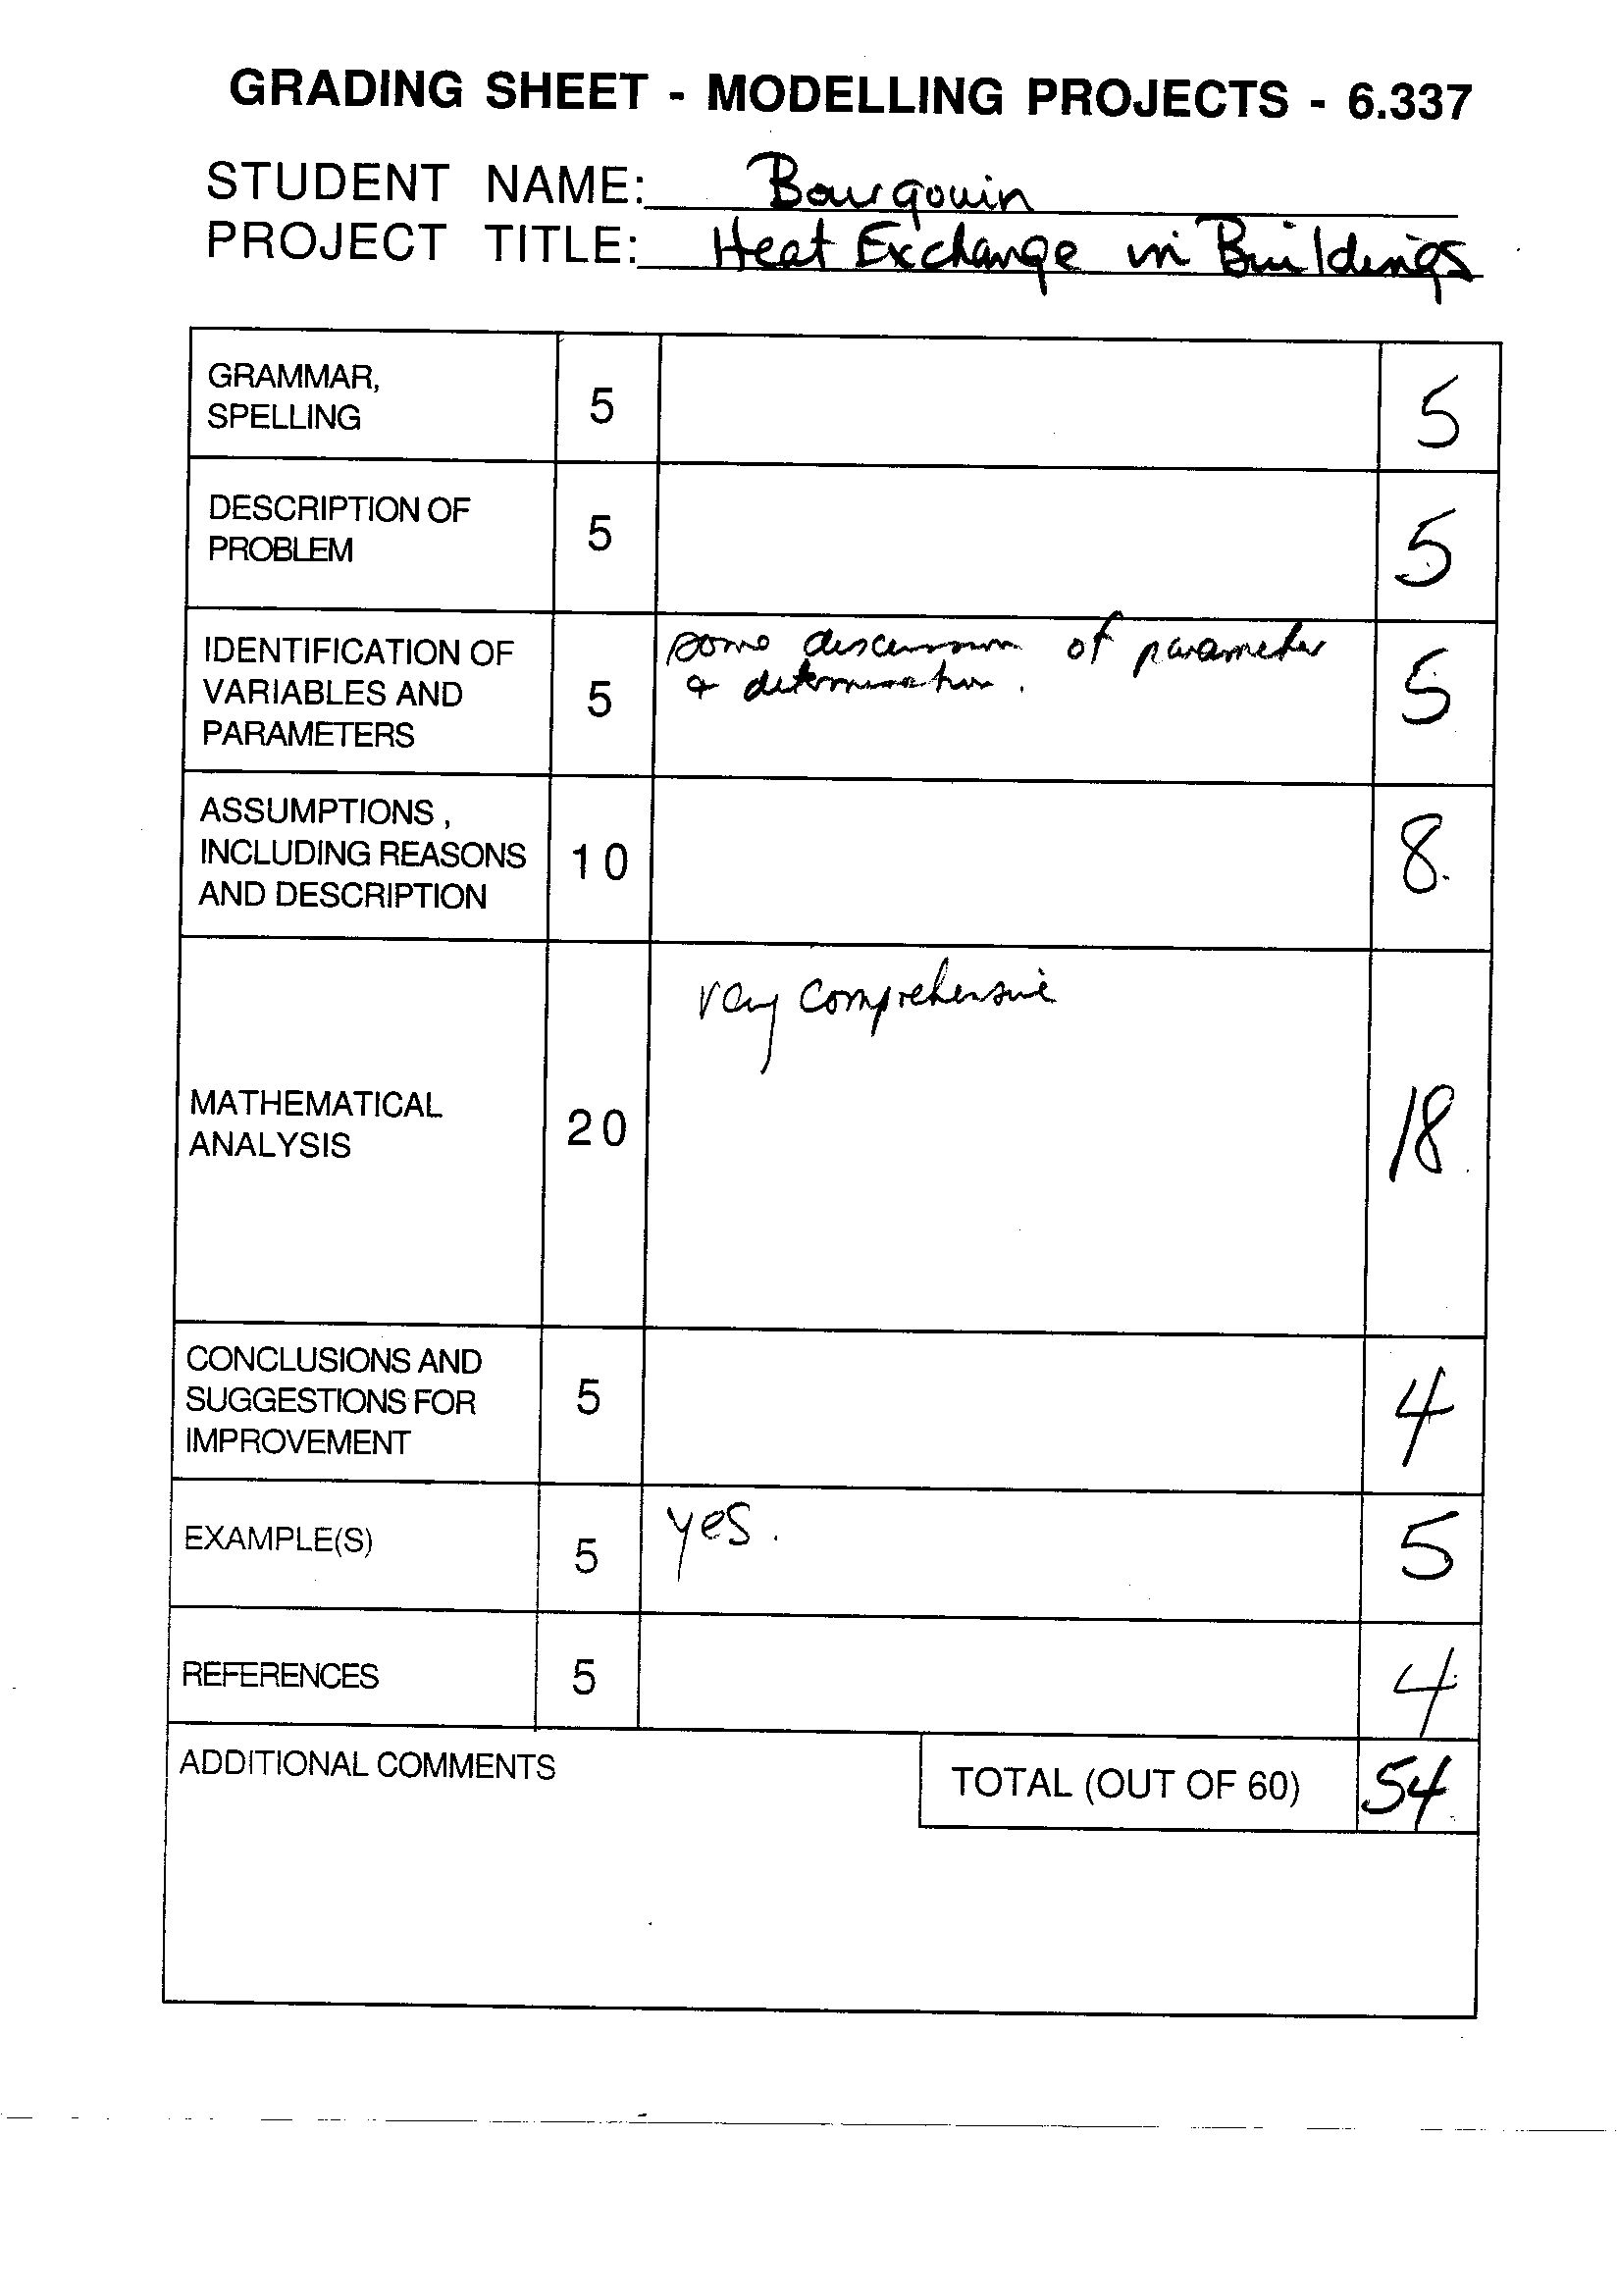 GRADING SHEET - MODELLING PROJECTS - 6.337
STUDENT NAME: Bourgouin
PROJECT TITLE: Heat Exchange in Buildings
GRAMMAR,
SPELLING
5
5
DESCRIPTION OF
PROBLEM
5
5
IDENTIFICATION OF
VARIABLES AND
PARAMETERS
5
some discussion of parameter
& determination.
5
ASSUMPTIONS,
INCLUDING REASONS
AND DESCRIPTION
10
8.
MATHEMATICAL
ANALYSIS
20
very comprehensive
18
CONCLUSIONS AND
SUGGESTIONS FOR
IMPROVEMENT
5
4
EXAMPLE(S)
5
yes.
5
REFERENCES
5
4
ADDITIONAL COMMENTS
TOTAL (OUT OF 60)
54